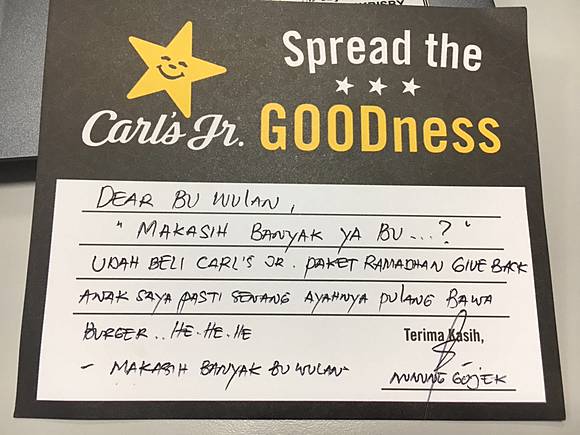 Spread the
Carl's Jr. GOODness
DEAR BU WULAN,
"MAKASIH BANYAK YA BU...?"
UDAH BELI CARL'S JR. PAKET RAMADHAN GIVE BACK
ANAK SAYA PASTI SENANG AYAHNYA PULANG BAWA
BURGER.. HE.HE.HE
Terima Kasih,
- MAKASIH BANYAK BU WULAN-
GOJEK